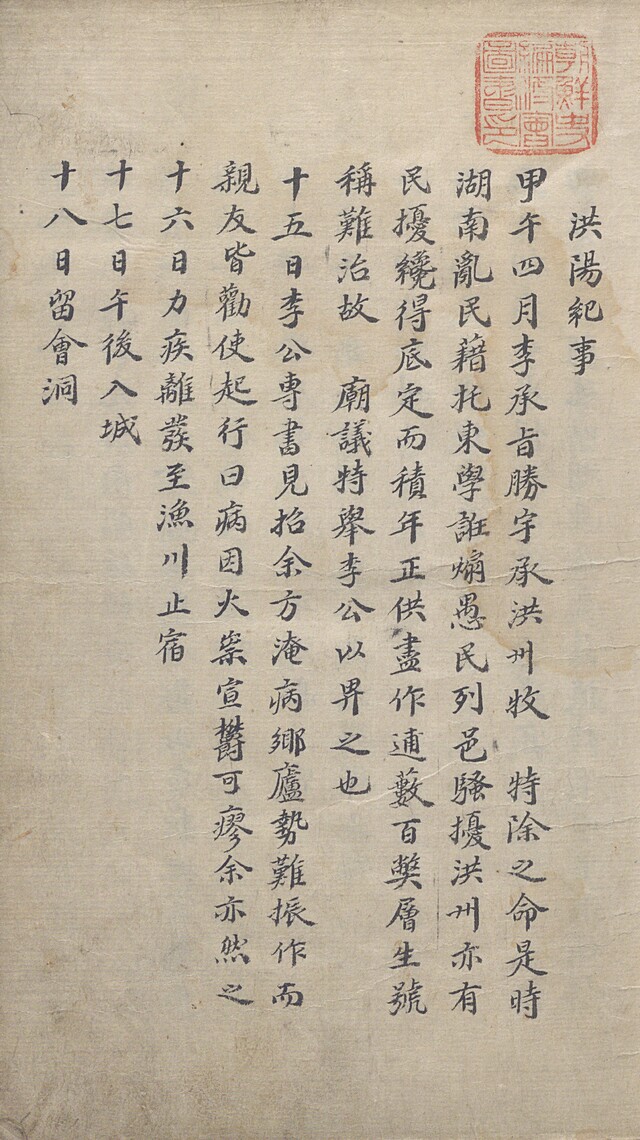 朝鮮史
編修會
圖書印
洪陽紀事
甲午四月李承旨勝宇承洪州牧 特除之命是時
湖南亂民藉托東學誑煽愚民列邑騷擾洪州亦有
民擾纔得底定而積年正供盡作逋藪百獘層生號
稱難治故 廟議特舉李公以畀之也
十五日李公專書見招余方淹病鄉廬勢難振作而
親友皆勸使起行曰病因火祟宣鬱可瘳余亦然之
十六日力疾離發至漁川止宿
十七日午後入城
十八日留會洞